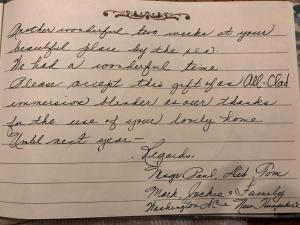 Another wonderful two weeks at your
beautiful place by the sea!
We had a wonderful time
Please accept this gift of an All-Clad
immersion blender as our thanks
for the use of your lovely home
Until next year —
Regards,
Paul, Deb Tom
Mark, & Family
Washington DC & New Hampshire